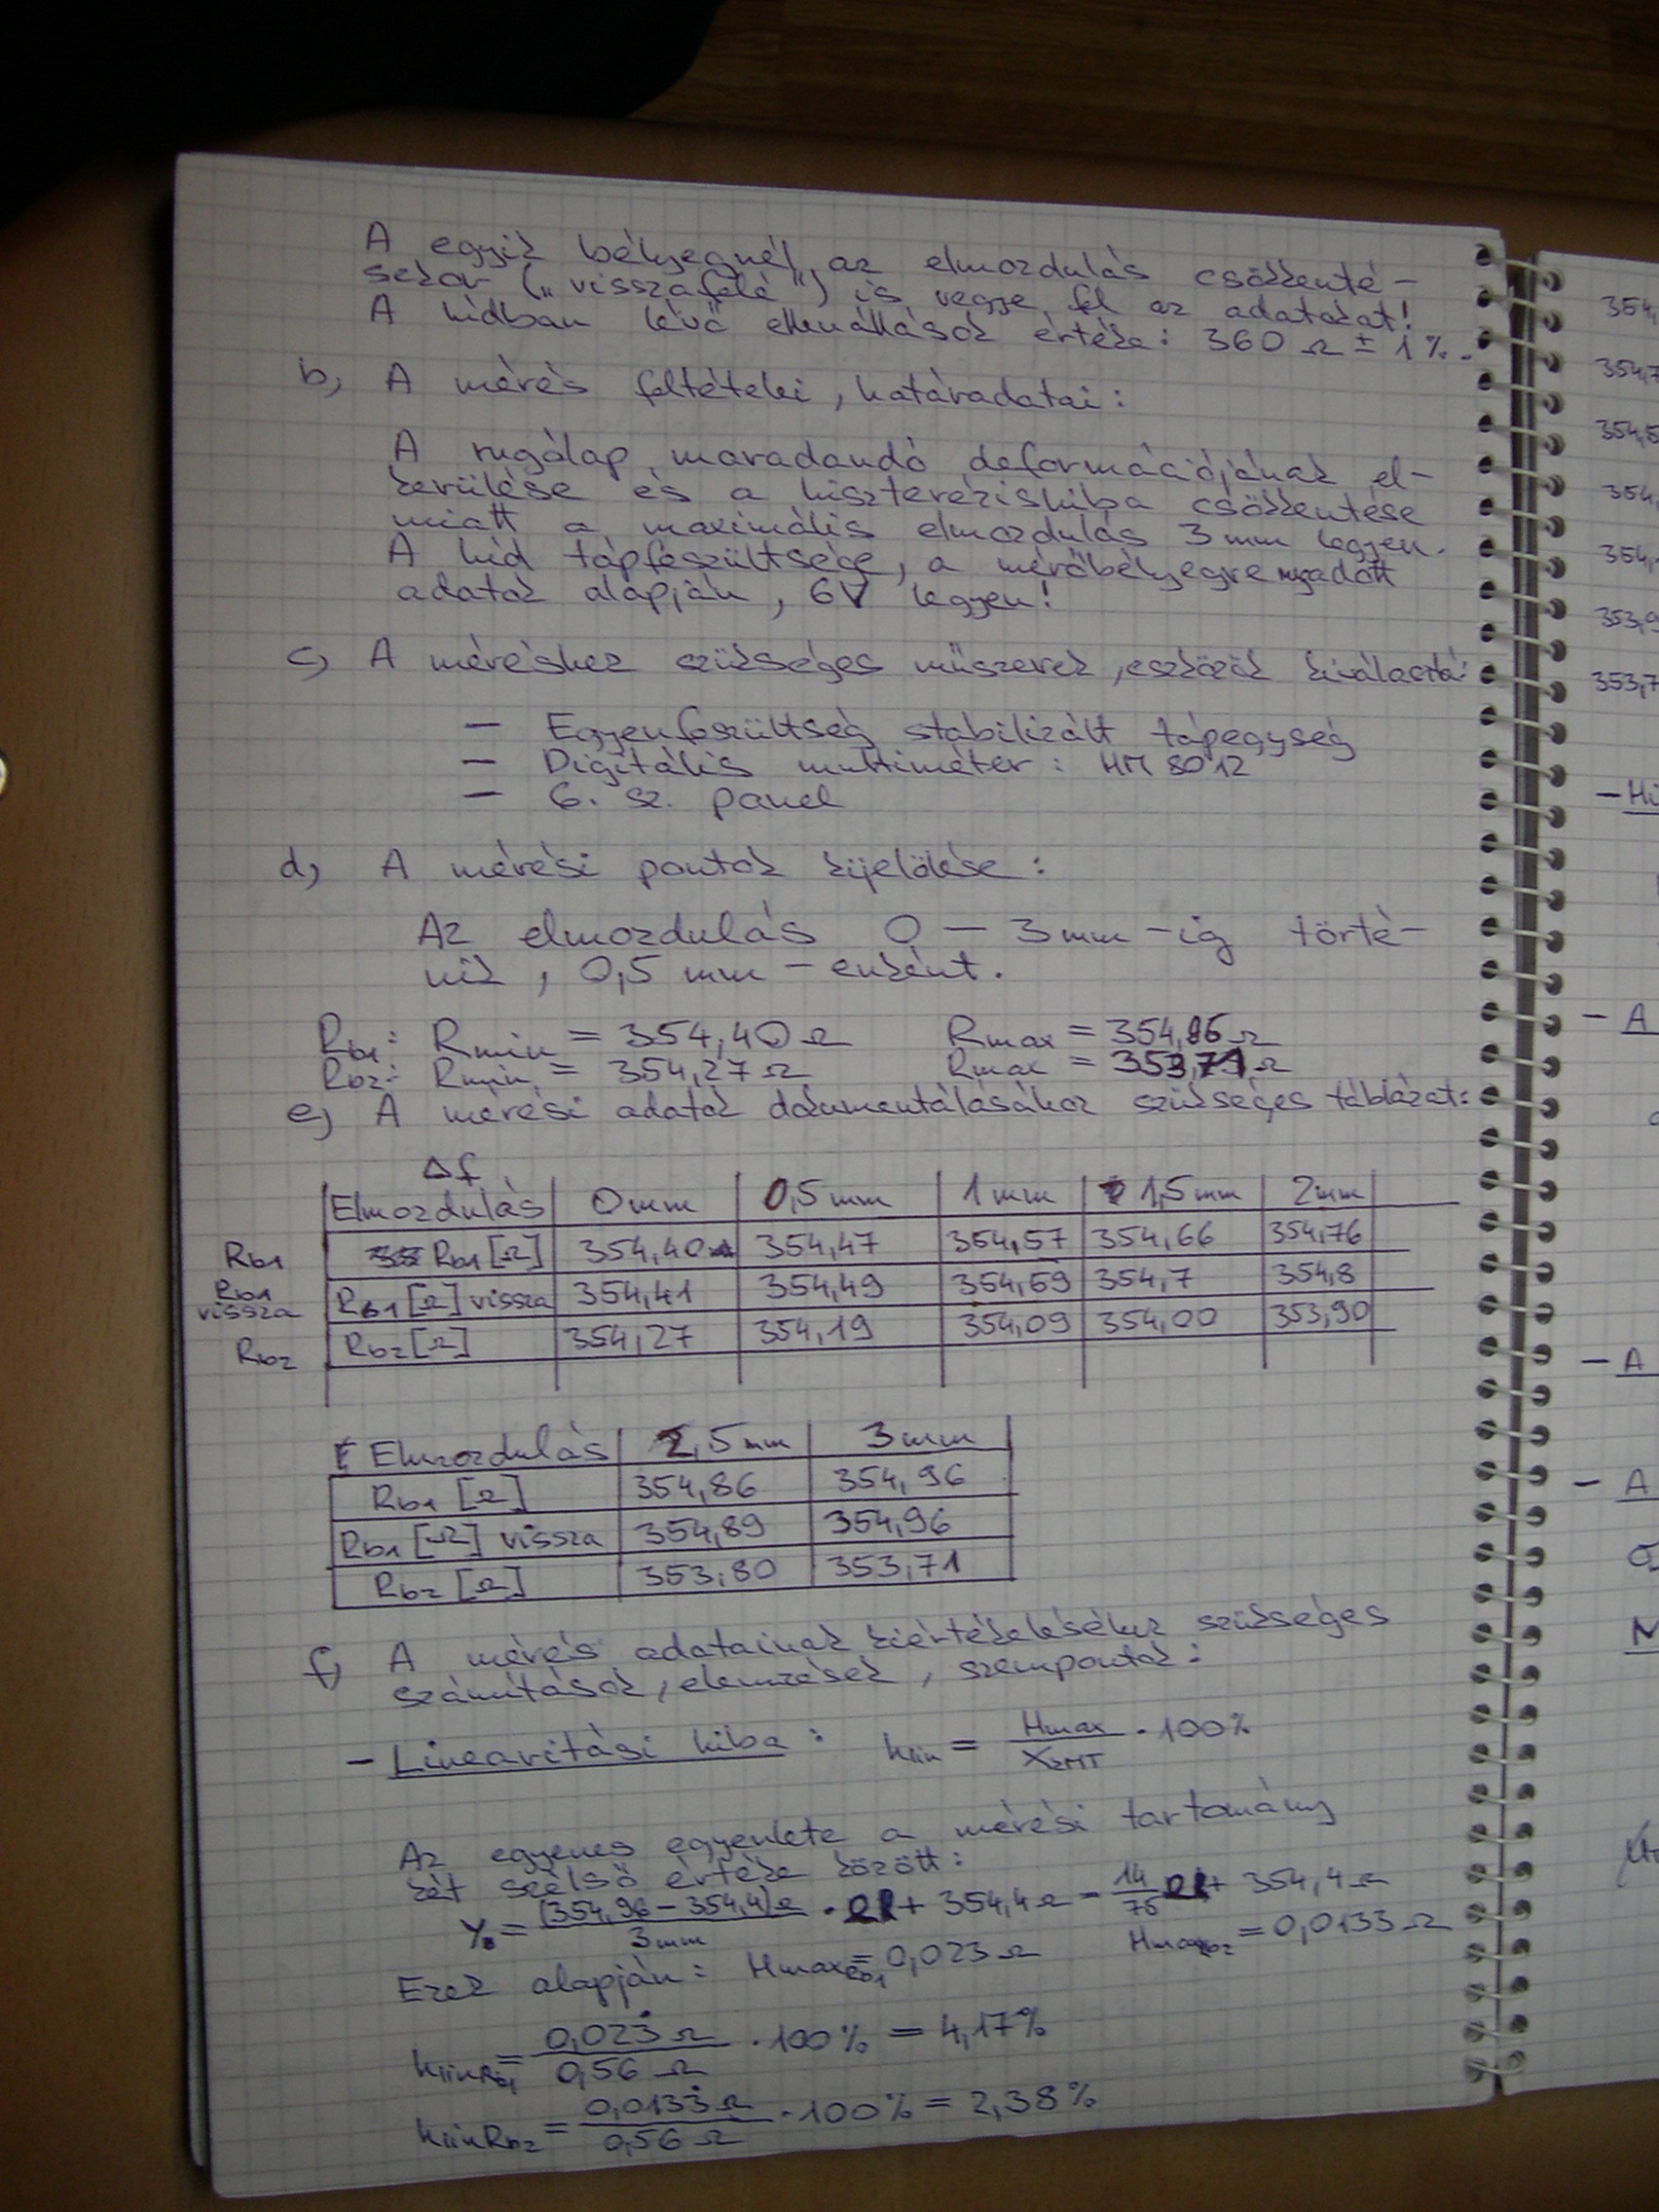 A egyik bélyegnél az elmozdulás csökkenté-
sekor („visszafelé") is vegye fel az adatokat!
A hídban lévő ellenállások értéke: 360 Ω ± 1%.
b, A mérés feltételei, határadatai:
A rugólap maradandó deformációjának el-
kerülése és a hiszterézishiba csökkentése
miatt a maximális elmozdulás 3mm legyen.
A híd tápfeszültsége, a mérőbélyegre megadott
adatok alapján, 6V legyen!
c, A méréshez szükséges műszerek, eszközök kiválasztá:
- Egyenfeszültség stabilizált tápegység
- Digitális multiméter: HM 8012
- 6. sz. panel
d, A mérési pontok kijelölése:
Az elmozdulás 0 - 3mm-ig törté-
nik, 0,5 mm-enként.
Rb1: Rmin = 354,40Ω Rmax = 354,86Ω
Rb2: Rmin = 354,27Ω Rmax = 353,71Ω
e, A mérési adatok dokumentálásához szükséges táblázat:
Δf
Elmozdulás 0mm 0,5mm 1mm 1,5mm 2mm
Rb1 Rb1[Ω] 354,40 354,47 354,57 354,66 354,76
Rb1 vissza Rb1[Ω] vissza 354,41 354,49 354,59 354,7 354,8
Rb2 Rb2[Ω] 354,27 354,19 354,09 354,00 353,90
Elmozdulás 2,5mm 3mm
Rb1 [Ω] 354,86 354,96
Rb1 [Ω] vissza 354,89 354,96
Rb2 [Ω] 353,80 353,71
f, A mérés adatainak kiértékeléséhez szükséges
számítások, elemzések, szempontok:
- Linearitási hiba: hlin = Hmax/XzMT · 100%
Az egyenes egyenlete a mérési tartomány
két szélső értéke között:
Y = (354,96 - 354,4)Ω / 3mm · + 354,4Ω = 14/75 + 354,4Ω
Ezek alapján: HmaxRb1 = 0,023Ω HmaxRb2 = 0,0133Ω
hlinRb1 = 0,023Ω / 0,56Ω · 100% = 4,17%
hlinRb2 = 0,0133Ω / 0,56Ω · 100% = 2,38%